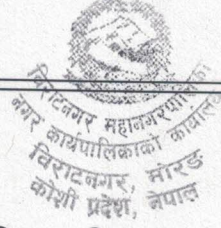 विराटनगर महानगरपालिका
नगर कार्यपालिकाको कार्यालय
विराटनगर, मोरङ
कोशी प्रदेश, नेपाल